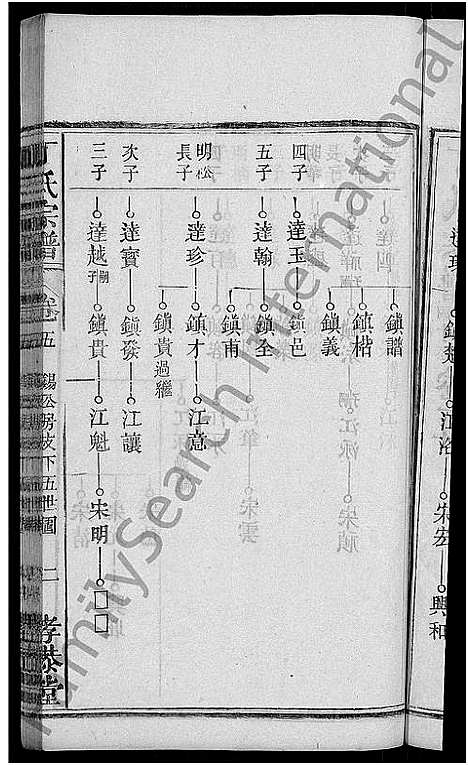 達珎
鎮楚
江洛
宋宏
興和
鎮譜
鎮楷
鎮義
四子
達玉
鎮邑
五子
達翰
鎮全
鎮南
明松
長子
達珍
鎮才
江意
鎮貴過繼
次子
達寶
鎮發
江讓
三子
達越嗣子
鎮貴
江魁
宋明
□□
丁氏宗譜
卷五
錫公房友下五世圖
二
孝恭堂
FamilySearch International